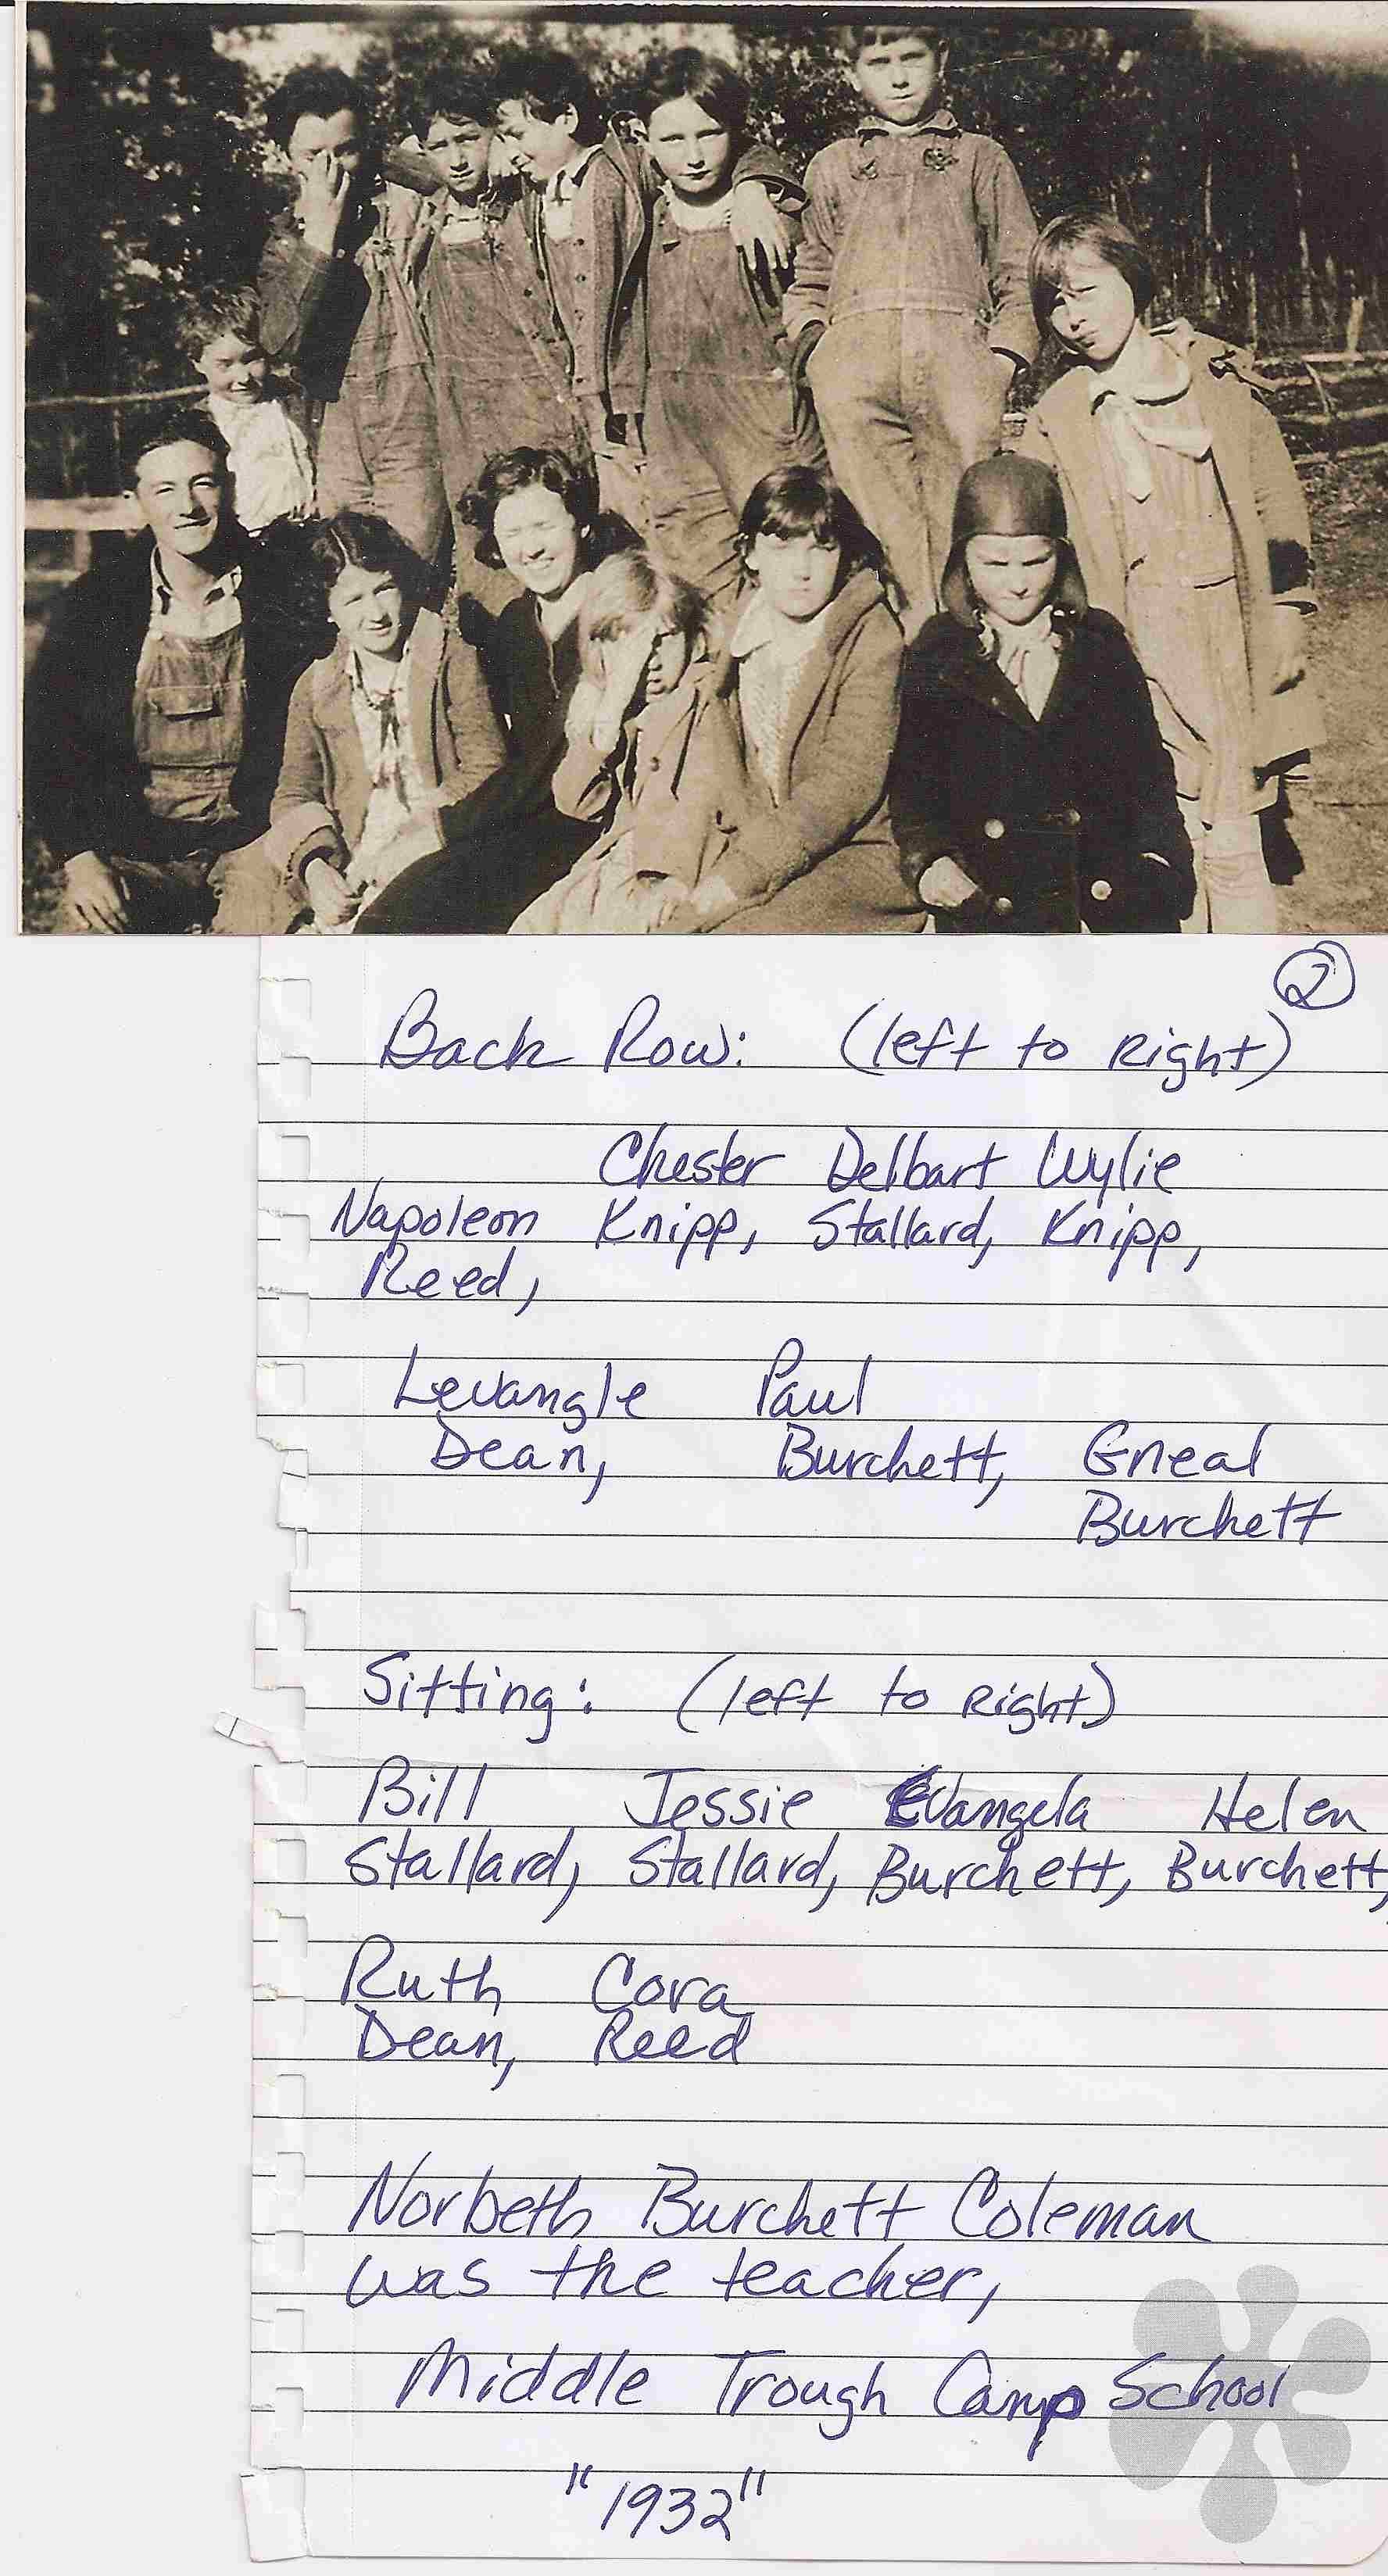 2
Back Row: (left to Right)
Chester Delbart Wylie
Napoleon Knipp, Stallard, Knipp,
Reed,
Levangle Paul
Dean, Burchett, Gneal
Burchett
Sitting: (left to Right)
Bill Jessie Evangela Helen
Stallard, Stallard, Burchett, Burchett,
Ruth Cora
Dean, Reed
Norbeth Burchett Coleman
was the teacher,
Middle Trough Camp School
"1932"